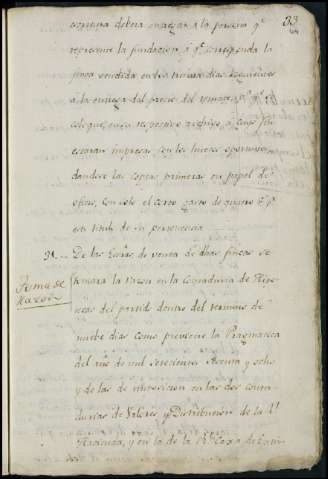 33
deberá entregar á la persona q.e
represente la fundacion á q.e corresponda la
finca vendida en los treinta dias siguientes
á la entrega del precio del remate, p.a q.e se
coloque en su respectivo archivo, á cuyo fin
estaran impresas con los huecos oportunos
dandose las copias primeras en papel de
oficio, con solo el corto gasto de
titulo de su pertenencia.
31.. De las Escri.as de venta de dhas fincas se
Toma de
Razon
tomará la razon en la Contaduria de Hipo-
tecas del partido dentro del termino de
nuebe dias como previene la Pragmatica
del año de mil setecientos sesenta y ocho
y de las de imposicion en las dos conta-
durias de Valores y Distribucion de la R.l
Hacienda, y en la de la R.l Caxa de